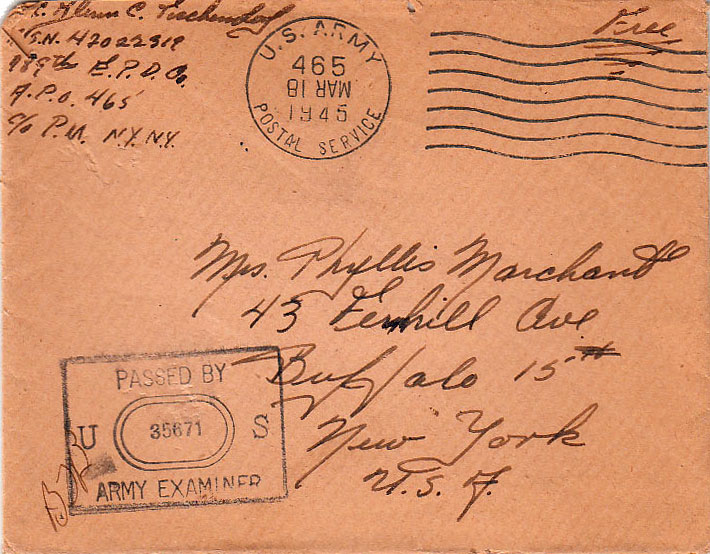 Glenn C. Tischendorf
A.S.N. 42022319
E.P.D. Co
A.P.O. 465
c/o P.M. N.Y. N.Y.
U.S. ARMY
465
MAR 18
1945
POSTAL SERVICE
Free
Mrs. Phyllis Marchant
43 Fernhill Ave
Buffalo 15th
New York
U.S.A.
PASSED BY
U 35671 S
ARMY EXAMINER